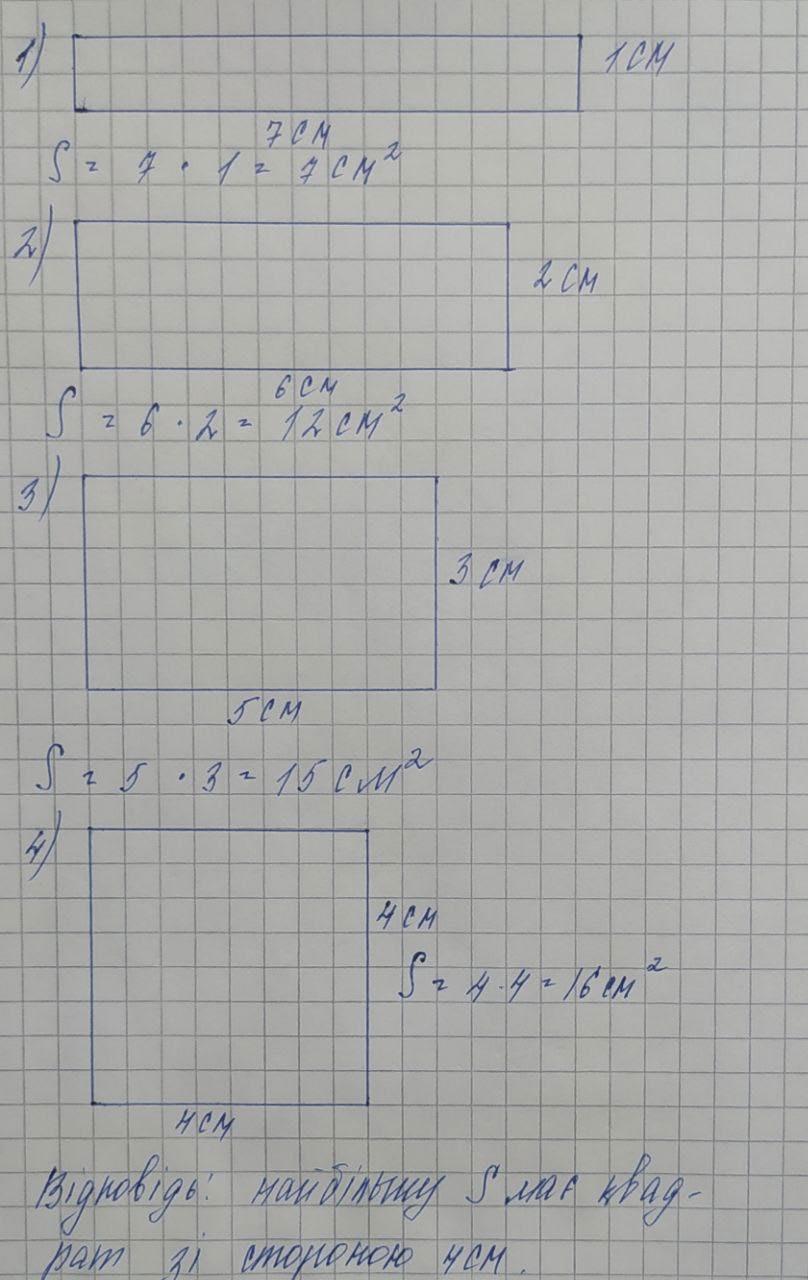 1)
1 см
7 см
S = 7 · 1 = 7 см²
2)
2 см
6 см
S = 6 · 2 = 12 см²
3)
3 см
5 см
S = 5 · 3 = 15 см²
4)
4 см
S = 4 · 4 = 16 см²
4 см
Відповідь: найбільшу S має квад-
рат зі стороною 4 см.